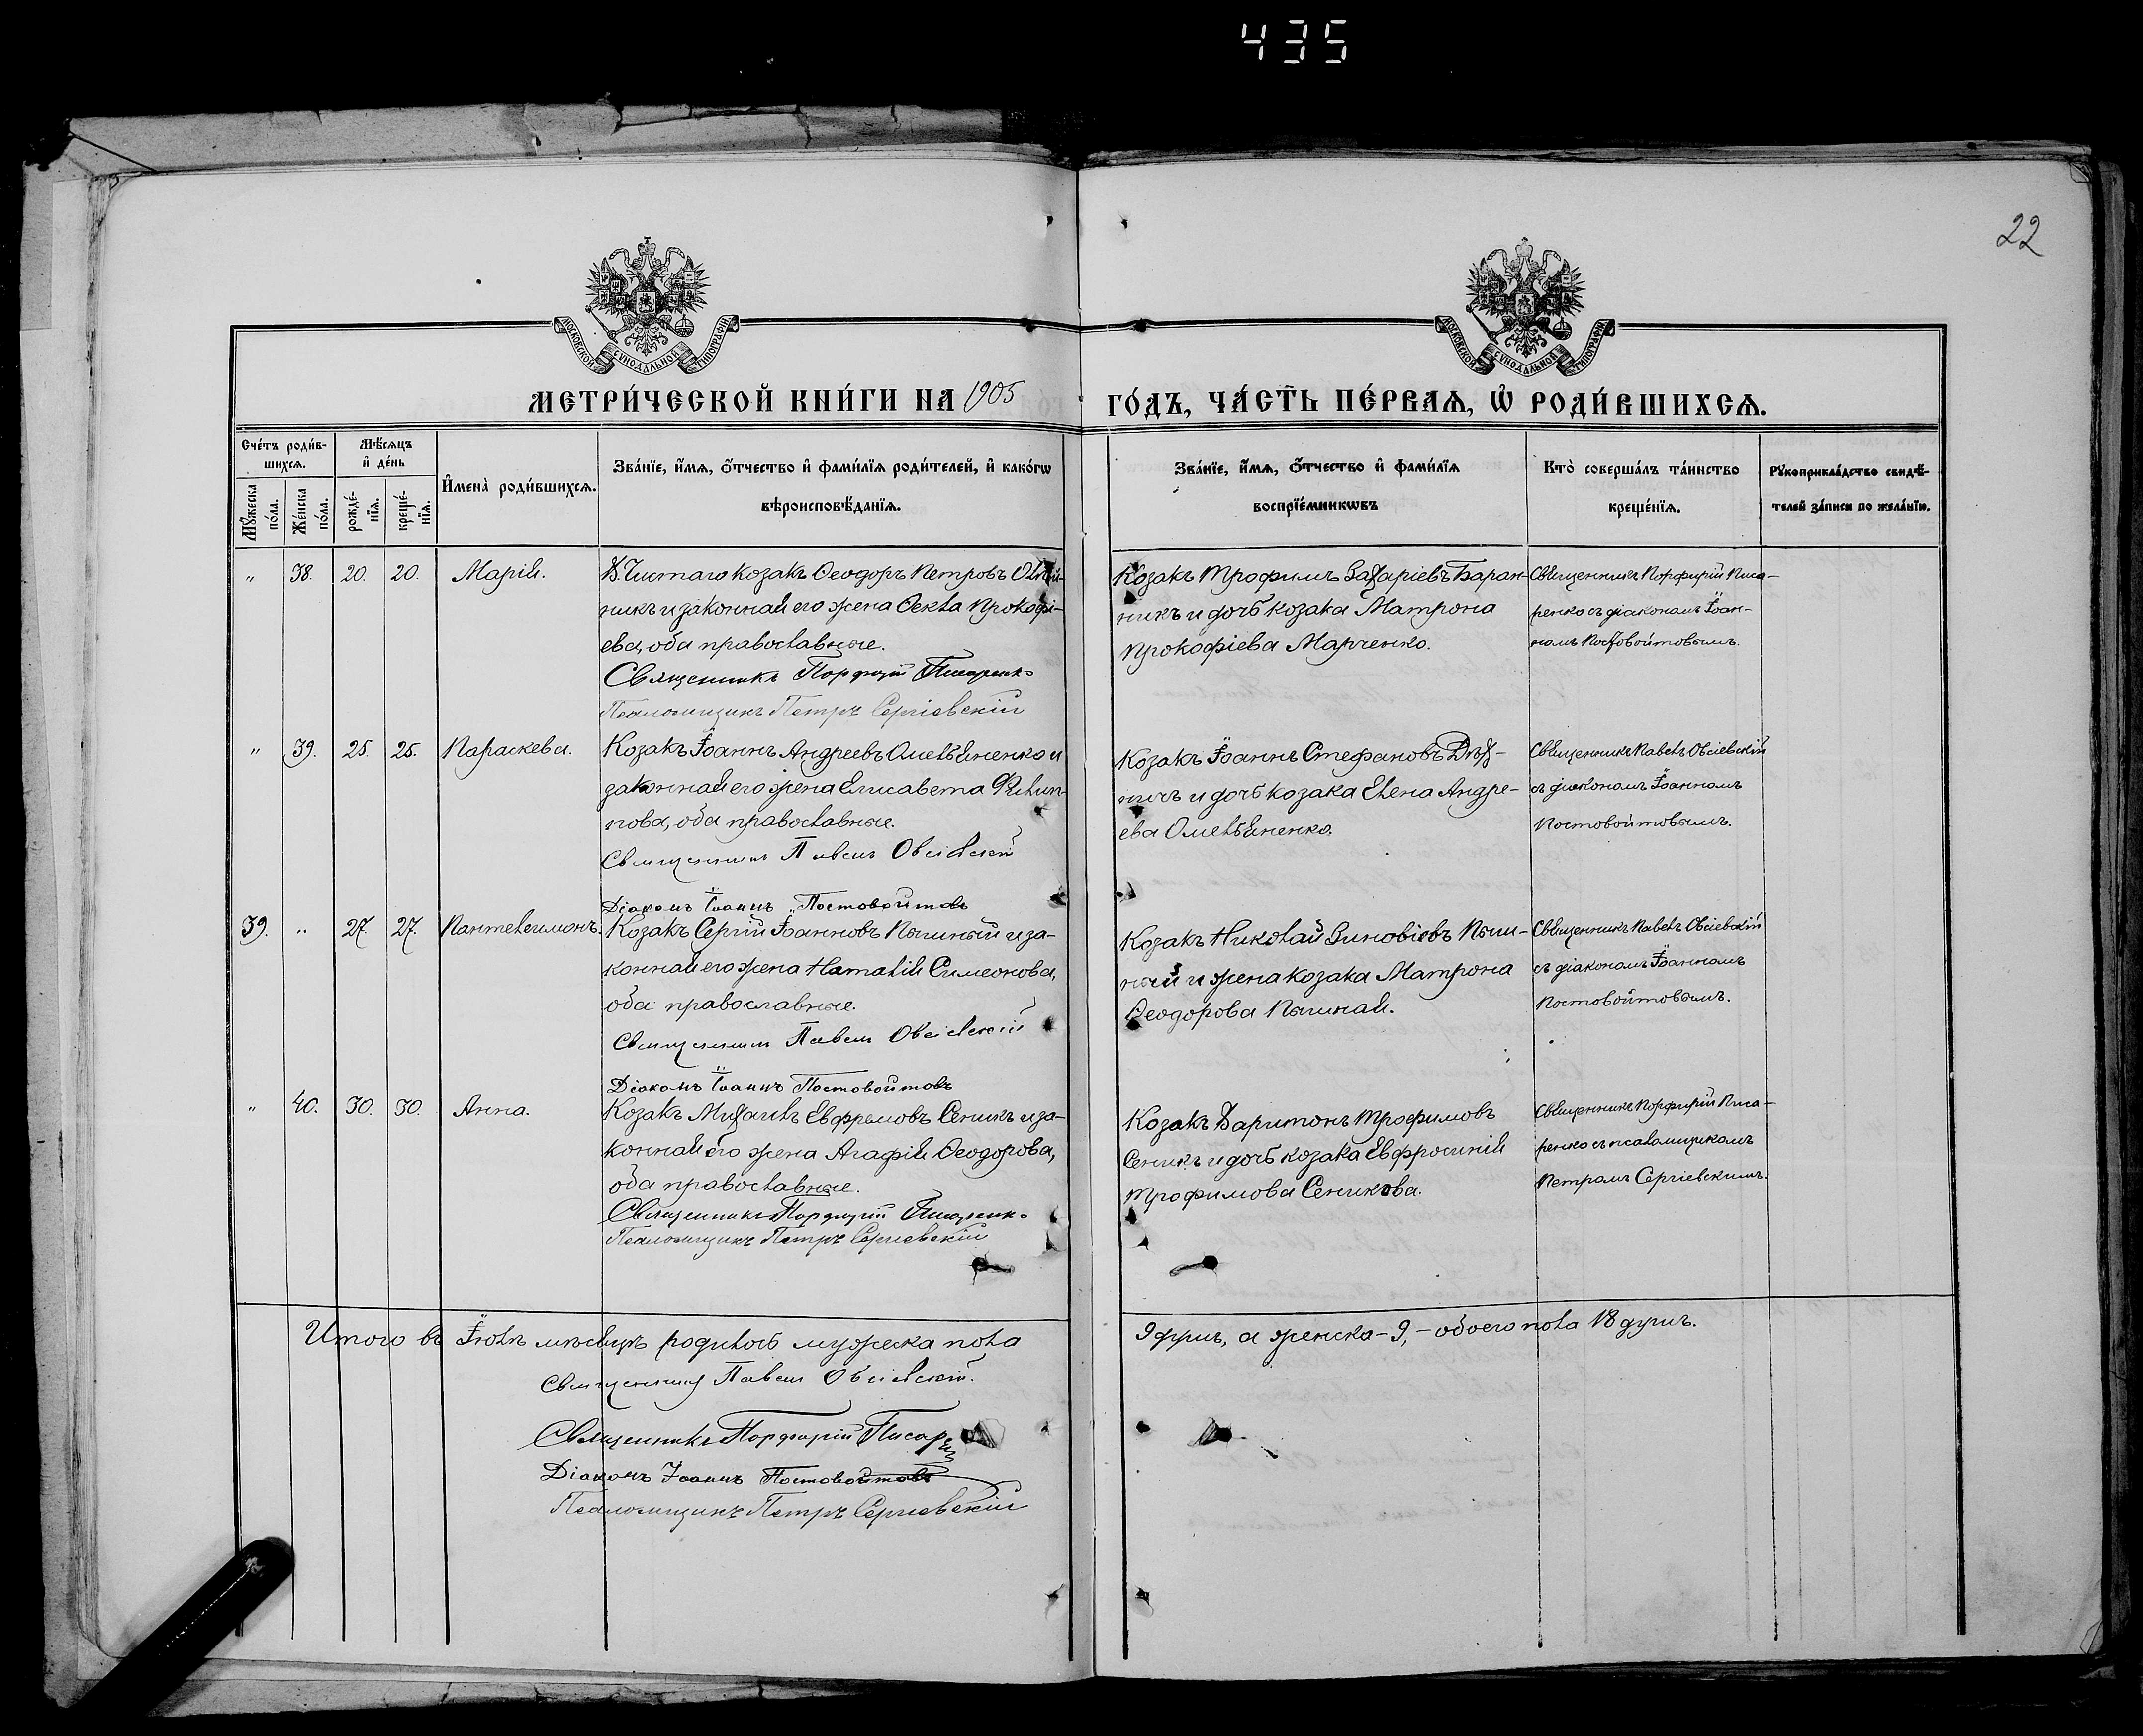 435
22
МОСКОВСКОЙ СѴНОДАЛЬНОЙ ТИПОГРАФІИ
МОСКОВСКОЙ СѴНОДАЛЬНОЙ ТИПОГРАФІИ
МЕТРИ́ЧЕСКОЙ КНИ́ГИ НА 1905
ГО́ДЪ, ЧА́СТЬ ПЕ́РВАЯ, Ѡ҆ РОДИ́ВШИХСЯ.
Сче́тъ роди́в-
шихся.
Мѣ́сяцъ
и҆ де́нь
Му́жеска
по́ла.
Же́нска
по́ла.
рожде́-
нїя.
креще́-
нїя.
И҆мена̀ роди́вшихся.
Зва́нїе, и҆́мя, ѻ҆́тчество и҆ фами́лїя роди́телей, и҆ како́гѡ
вѣроисповѣ́данїя.
Зва́нїе, и҆́мя, ѻ҆́тчество и҆ фами́лїя
воспрїе́мникѡвъ
Кто̀ соверша́лъ та́инство
креще́нїя.
Рꙋкоприкла́дство свидѣ́-
телей за́писи по жела́нїю.
" 38. 20. 20. Марія.
Х. Чистаго козакъ Ѳеодоръ Петровъ
никъ и законная его жена Ѳекла Прокофі-
ева, оба православные.
Священникъ Порфирій Писаренко
Псаломщикъ Петръ Сергіевскій
Козакъ Трофимъ Захаріевъ Баран-
никъ и дочь козака Матрона
Прокофіева Марченко.
Священникъ Порфирій Писа-
ренко съ діакономъ Іоан-
номъ Постовойтовымъ.
" 39. 25. 25. Параскева.
Козакъ Іоаннъ Андреевъ Омельяненко и
законная его жена Елисавета Филип-
пова, оба православные.
Священникъ Павелъ Овсіевскій
Діаконъ Іоаннъ Постовойтовъ
Козакъ Іоаннъ Стефановъ Дѣх-
тичъ и дочь козака Елена Андре-
ева Омельяненко.
Священникъ Павелъ Овсіевскій
съ діакономъ Іоанномъ
Постовойтовымъ.
39. " 27. 27. Пантелеимонъ.
Козакъ Сергій Іоанновъ Пышный и за-
конная его жена Наталія Симеонова,
оба православные.
Священникъ Павелъ Овсіевскій
Діаконъ Іоаннъ Постовойтовъ
Козакъ Николай Зиновіевъ Пыш-
ный и жена козака Матрона
Ѳеодорова Пышная.
Священникъ Павелъ Овсіевскій
съ діакономъ Іоанномъ
Постовойтовымъ.
" 40. 30. 30. Анна.
Козакъ Михаилъ Евфремовъ Сеникъ и за-
конная его жена Агафія Ѳеодорова,
оба православные.
Священникъ Порфирій Писаренко
Псаломщикъ Петръ Сергіевскій
Козакъ Харитонъ Трофимовъ
Сеникъ и дочь козака Евфросинія
Трофимова Сеникова.
Священникъ Порфирій Писа-
ренко съ псаломщикомъ
Петромъ Сергіевскимъ.
Итого въ Іюлѣ мѣсяцѣ родилось мужеска пола
9 душъ, а женска - 9, - обоего пола 18 душъ.
Священникъ Павелъ Овсіевскій.
Священникъ Порфирій Писаренко
Діаконъ Іоаннъ Постовойтовъ
Псаломщикъ Петръ Сергіевскій